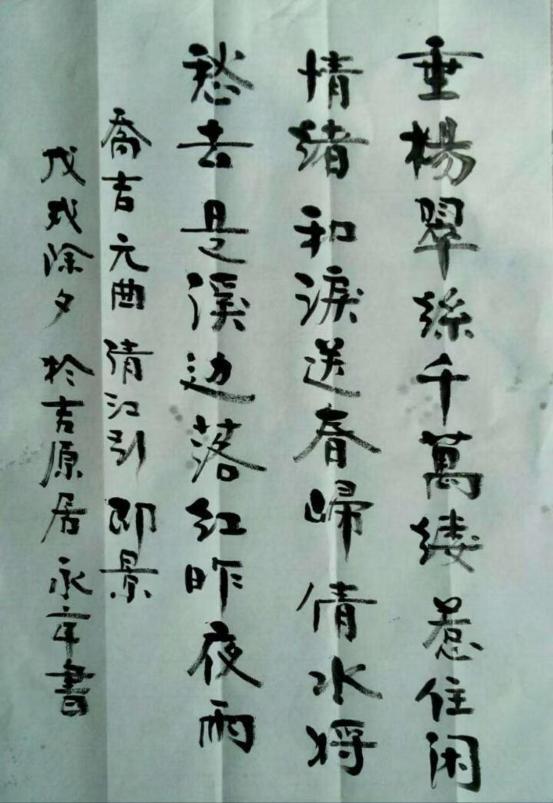 垂楊翠絲千萬縷惹住闲
情緒和淚送春歸倩水将
愁去是溪边落红昨夜雨
喬吉元曲清江引即景
戊戌除夕於吉原居永年書